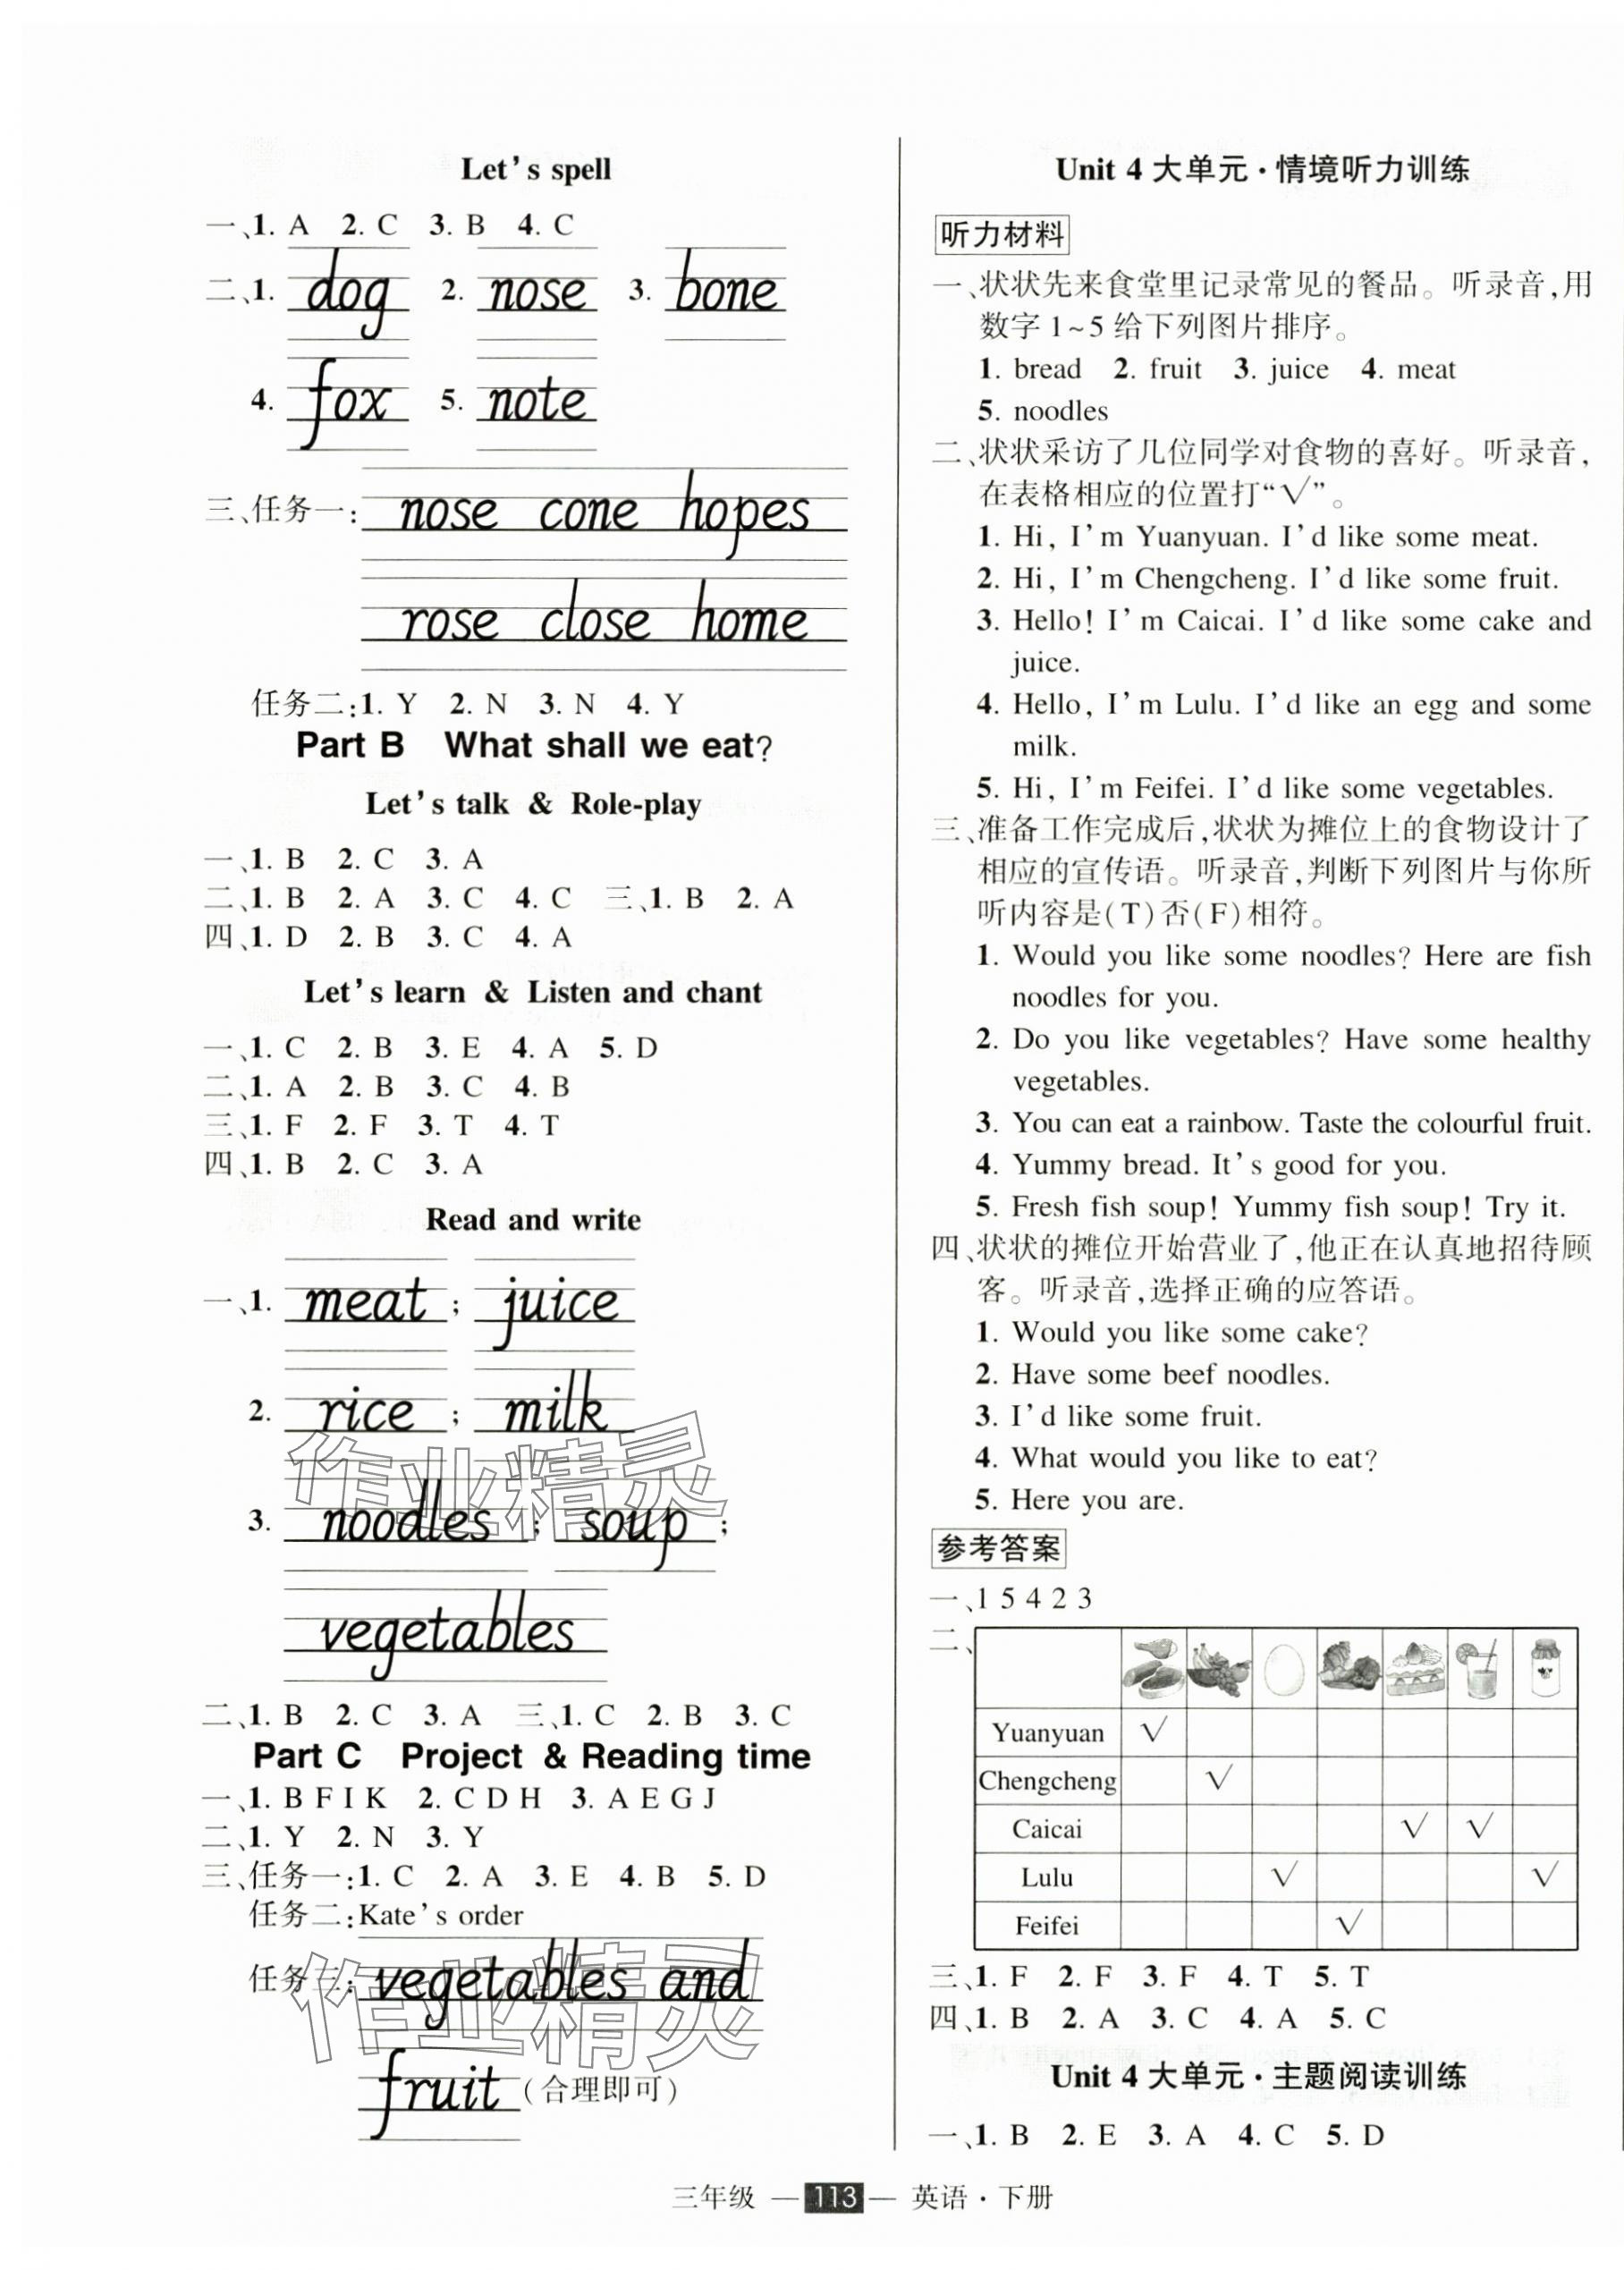 Let's spell
一、1. A 2. C 3. B 4. C
二、1. dog 2. nose 3. bone
4. fox 5. note
三、任务一: nose cone hopes
rose close home
任务二:1. Y 2. N 3. N 4. Y
Part B What shall we eat?
Let's talk & Role-play
一、1. B 2. C 3. A
二、1. B 2. A 3. C 4. C 三、1. B 2. A
四、1. D 2. B 3. C 4. A
Let's learn & Listen and chant
一、1. C 2. B 3. E 4. A 5. D
二、1. A 2. B 3. C 4. B
三、1. F 2. F 3. T 4. T
四、1. B 2. C 3. A
Read and write
一、1. meat ; juice
2. rice ; milk
3. noodles ; soup ;
vegetables
二、1. B 2. C 3. A 三、1. C 2. B 3. C
Part C Project & Reading time
一、1. B F I K 2. C D H 3. A E G J
二、1. Y 2. N 3. Y
三、任务一:1. C 2. A 3. E 4. B 5. D
任务二:Kate's order
任务三: vegetables and
fruit (合理即可)
作业精灵
作业精灵
Unit 4 大单元·情境听力训练
听力材料
一、状状先来食堂里记录常见的餐品。听录音,用
数字 1~5 给下列图片排序。
1. bread 2. fruit 3. juice 4. meat
5. noodles
二、状状采访了几位同学对食物的喜好。听录音,
在表格相应的位置打“√”。
1. Hi, I'm Yuanyuan. I'd like some meat.
2. Hi, I'm Chengcheng. I'd like some fruit.
3. Hello! I'm Caicai. I'd like some cake and
juice.
4. Hello, I'm Lulu. I'd like an egg and some
milk.
5. Hi, I'm Feifei. I'd like some vegetables.
三、准备工作完成后,状状为摊位上的食物设计了
相应的宣传语。听录音,判断下列图片与你所
听内容是(T)否(F)相符。
1. Would you like some noodles? Here are fish
noodles for you.
2. Do you like vegetables? Have some healthy
vegetables.
3. You can eat a rainbow. Taste the colourful fruit.
4. Yummy bread. It's good for you.
5. Fresh fish soup! Yummy fish soup! Try it.
四、状状的摊位开始营业了,他正在认真地招待顾
客。听录音,选择正确的应答语。
1. Would you like some cake?
2. Have some beef noodles.
3. I'd like some fruit.
4. What would you like to eat?
5. Here you are.
参考答案
一、1 5 4 2 3
二、
Yuanyuan √
Chengcheng √
Caicai √ √
Lulu √ √
Feifei √
三、1. F 2. F 3. F 4. T 5. T
四、1. B 2. A 3. C 4. A 5. C
Unit 4 大单元·主题阅读训练
一、1. B 2. E 3. A 4. C 5. D
三年级 — 113 — 英语·下册